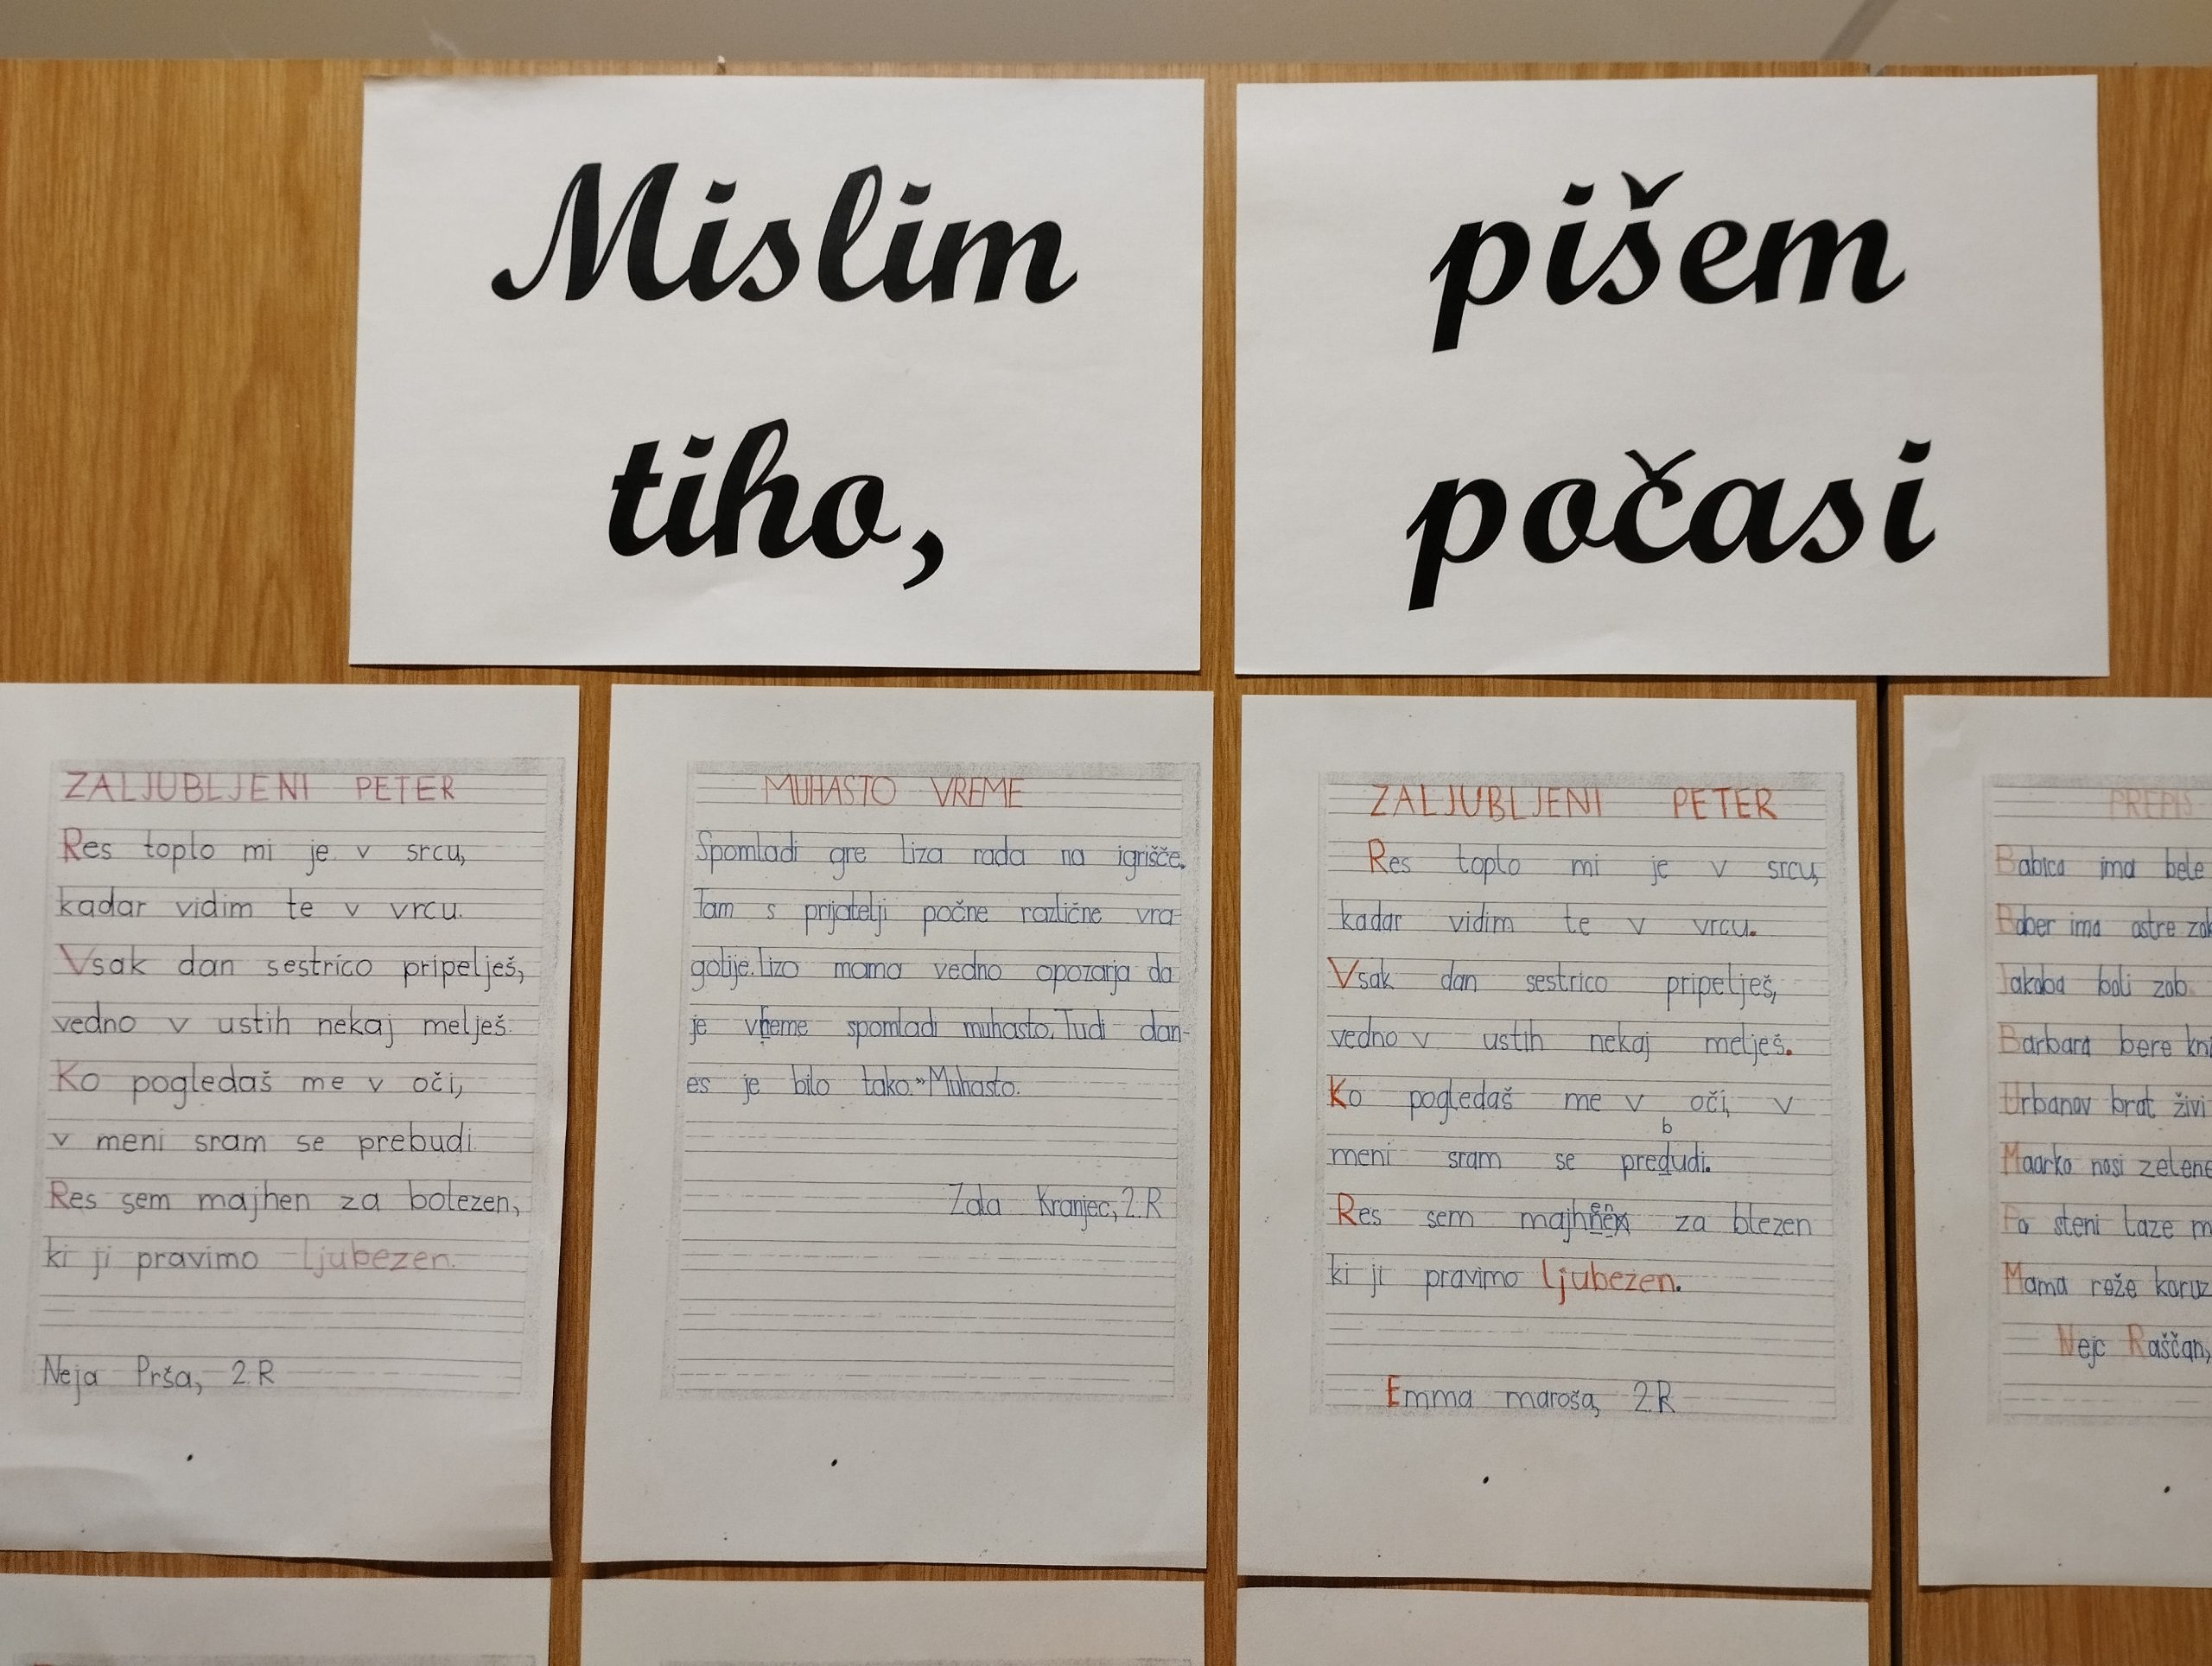 Mislim
tiho,
pišem
počasi
ZALJUBLJENI PETER
Res toplo mi je v srcu,
kadar vidim te v vrcu.
Vsak dan sestrico pripelješ,
vedno v ustih nekaj melješ.
Ko pogledaš me v oči,
v meni sram se prebudi.
Res sem majhen za bolezen,
ki ji pravimo ljubezen.
Neja Prša, 2.R
MUHASTO VREME
Spomladi gre Liza rada na igrišče.
Tam s prijatelji počne različne vra-
golije. Lizo mama vedno opozarja da
je vreme spomladi muhasto. Tudi dan-
es je bilo tako. "Muhasto.
Zala Kranjec, 2.R
ZALJUBLJENI PETER
Res toplo mi je v srcu,
kadar vidim te v vrcu.
Vsak dan sestrico pripelješ,
vedno v ustih nekaj melješ.
Ko pogledaš me v oči, v
b
meni sram se predudi.
Res sem majhen za blezen
ki ji pravimo ljubezen.
Emma maroša, 2.R
PREPIS
Babica ima bele
Bober ima ostre
Jakoba boli zob.
Barbara bere
Urbanov brat živi
Maarko nosi
Po steni laze
Mama reže
Nejc Raščan,